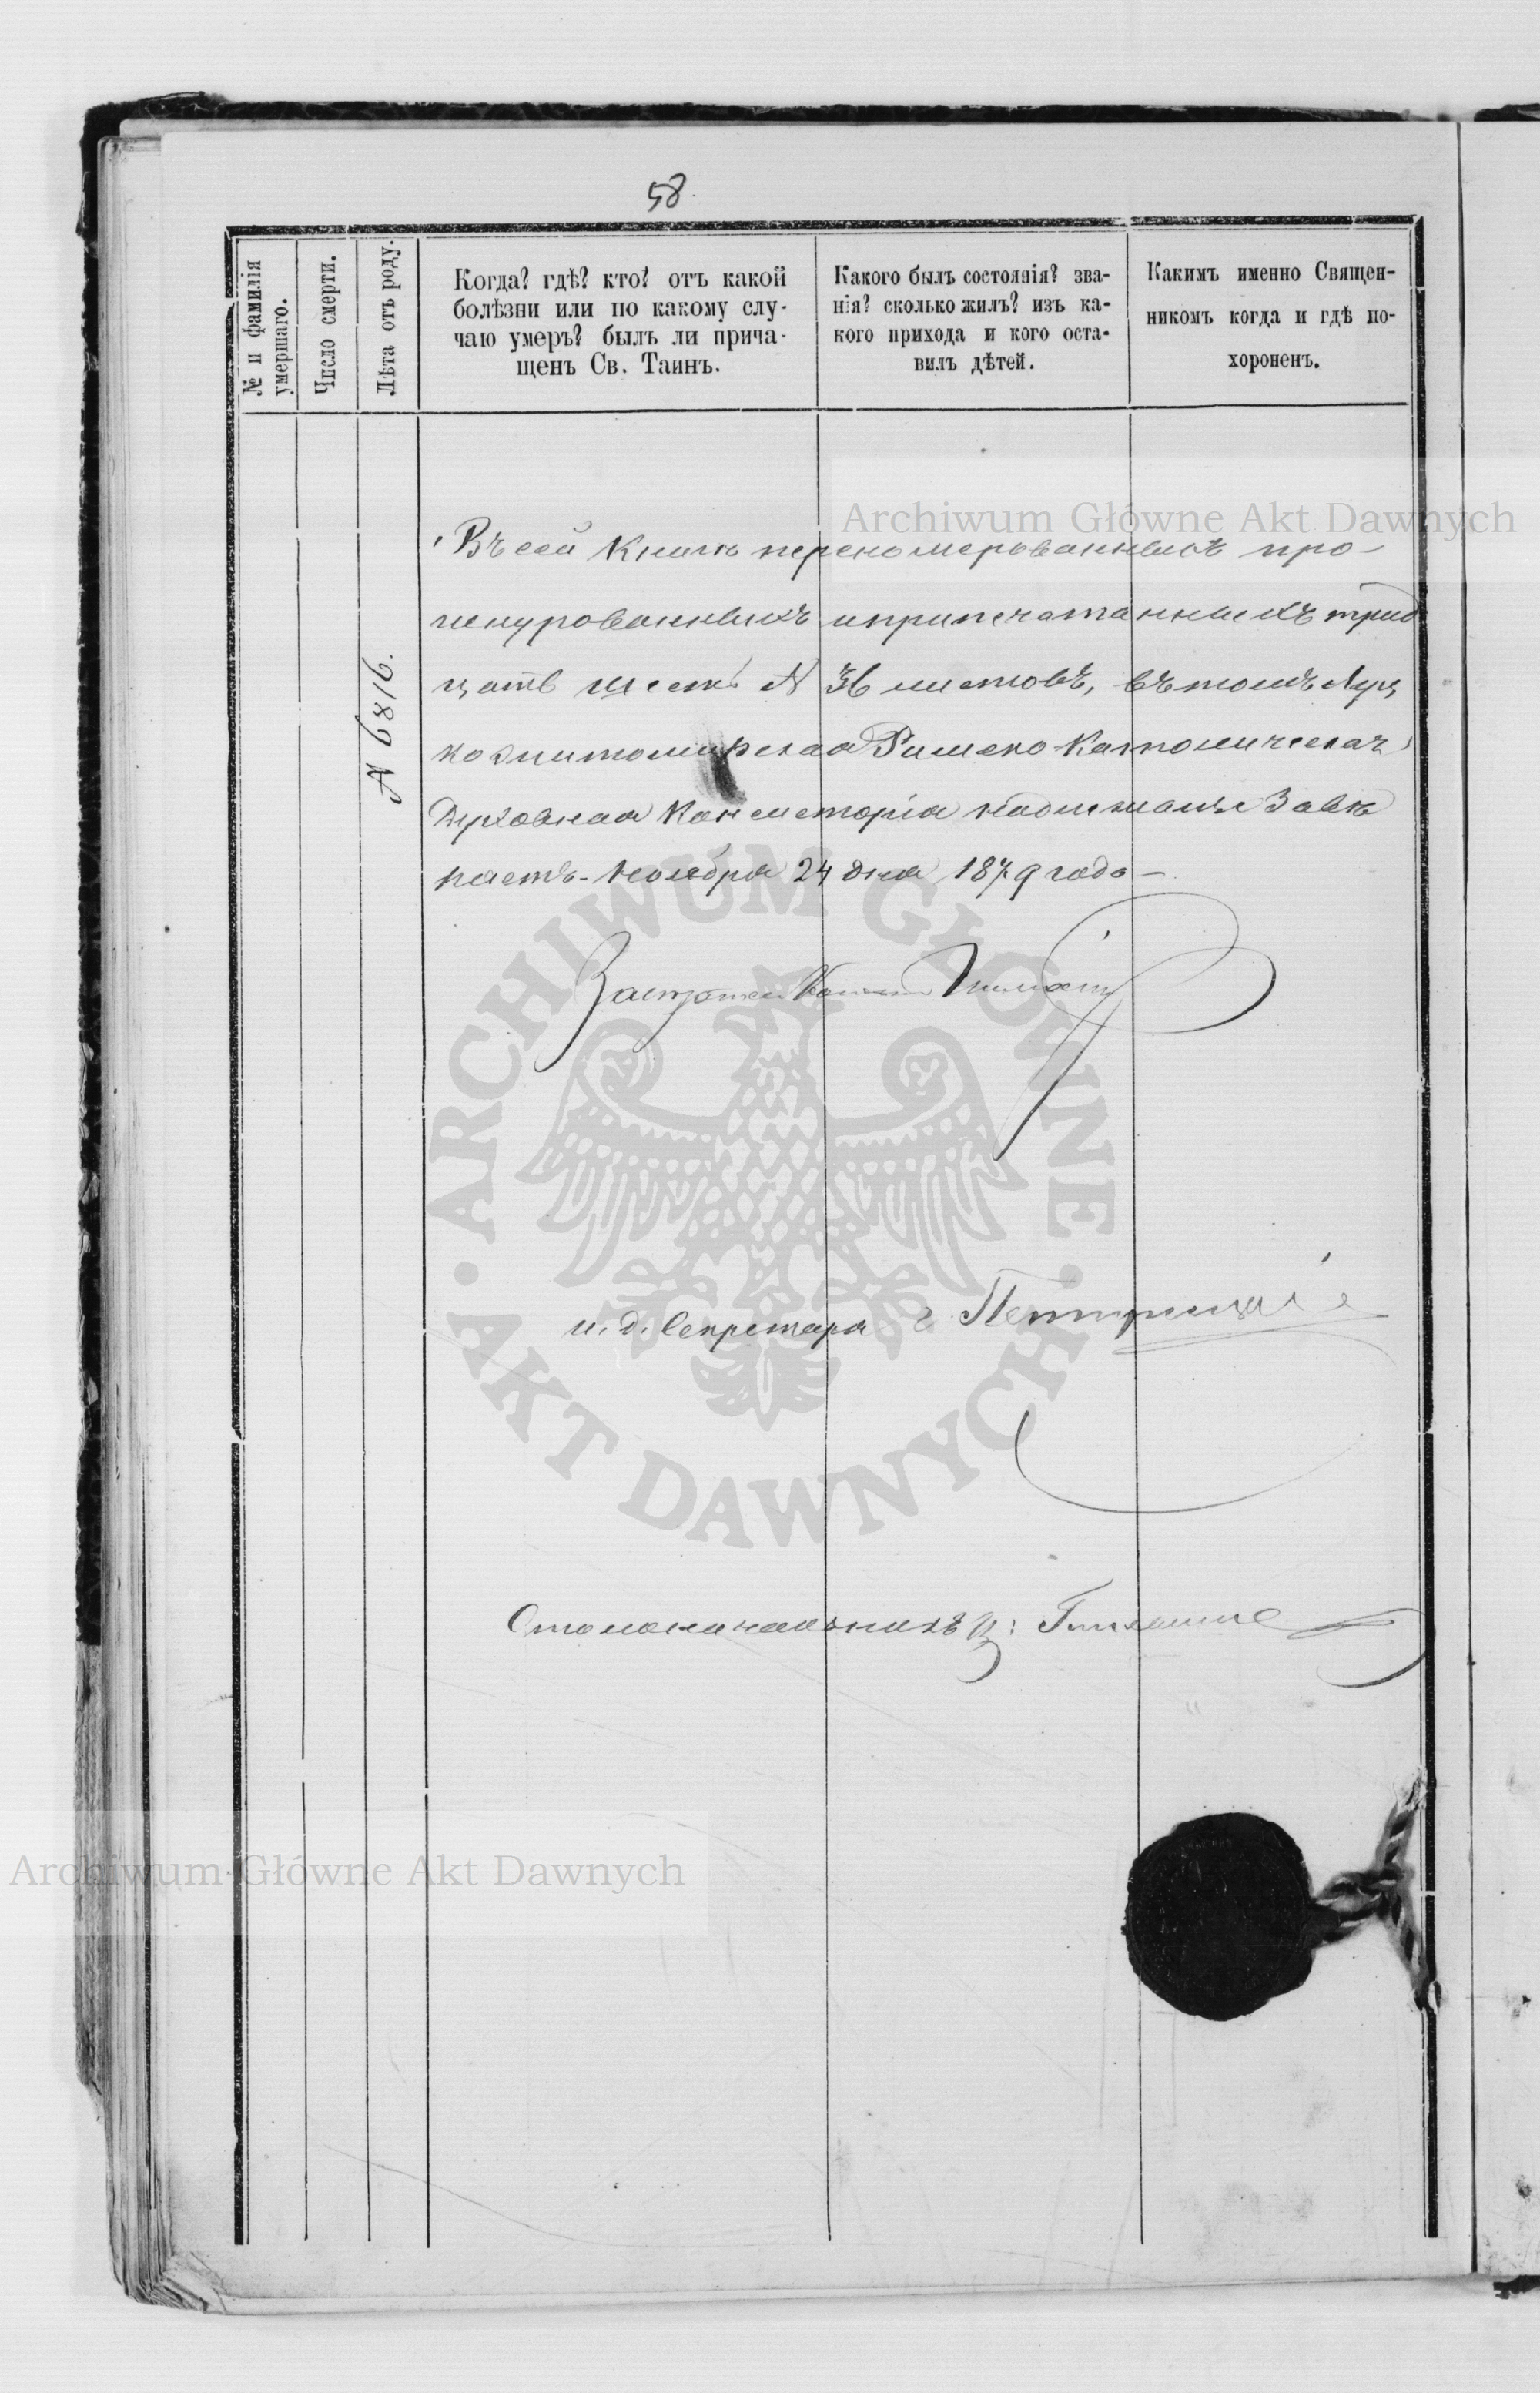 58
№ и фамилія
умершаго.
Число смерти.
Лѣта отъ роду.
Когда? гдѣ? кто? отъ какой
болѣзни или по какому слу-
чаю умеръ? былъ ли прича-
щенъ Св. Таинъ.
Какого былъ состоянія? зва-
нія? сколько жилъ? изъ ка-
кого прихода и кого оста-
вилъ дѣтей.
Какимъ именно Священ-
никомъ когда и гдѣ по-
хороненъ.
Archiwum Główne Akt Dawnych
Въ сей Книгѣ перенумерованныхъ про-
шнурованныхъ и припечатанныхъ трид
цать шесть № 36 листовъ, въ томъ Луц
коЖитомирская Римско-Католическая
Духовная Консисторія надлежаще завѣ
ряетъ. Ноября 24 дня 1879 года —
№ 6816.
ARCHIWUM GŁÓWNE
AKT DAWNYCH
и. д. Секретаря
Столоначальникъ
Archiwum Główne Akt Dawnych